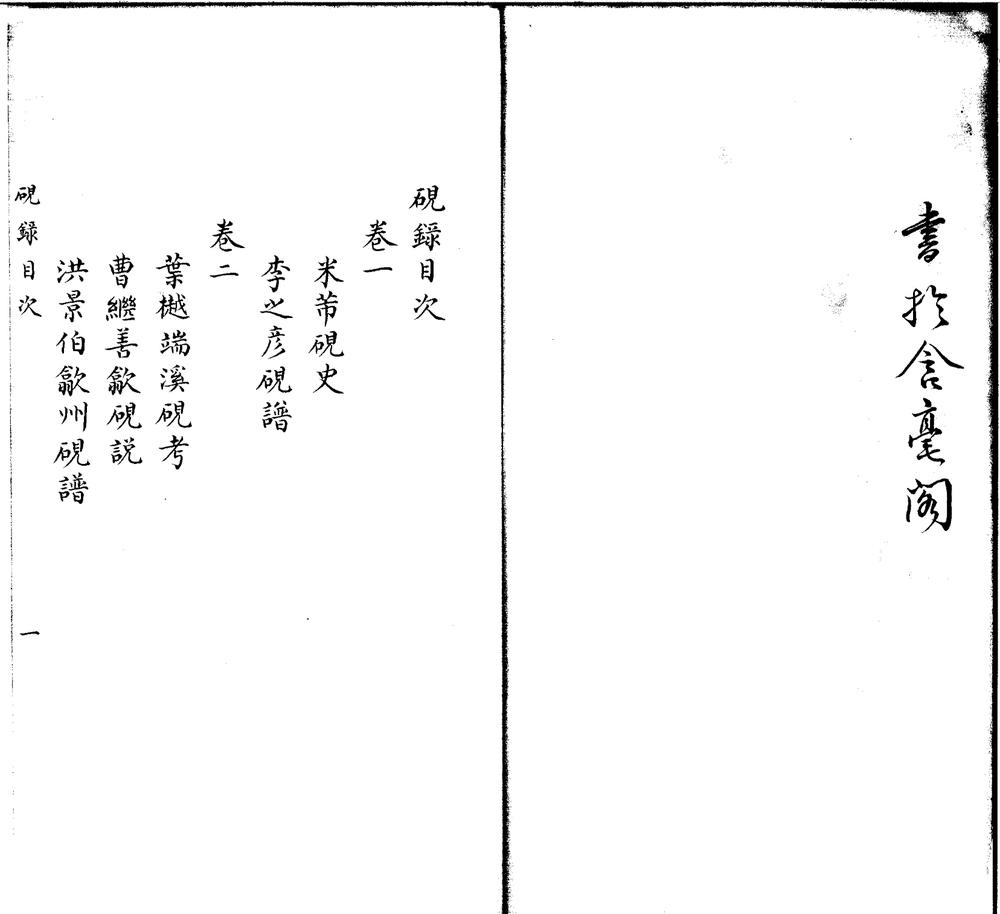 書扵含毫閣
硯録目次
卷一
米芾硯史
李之彦硯譜
卷二
葉樾端溪硯考
曹繼善歙硯説
洪景伯歙州硯譜
硯録目次
一